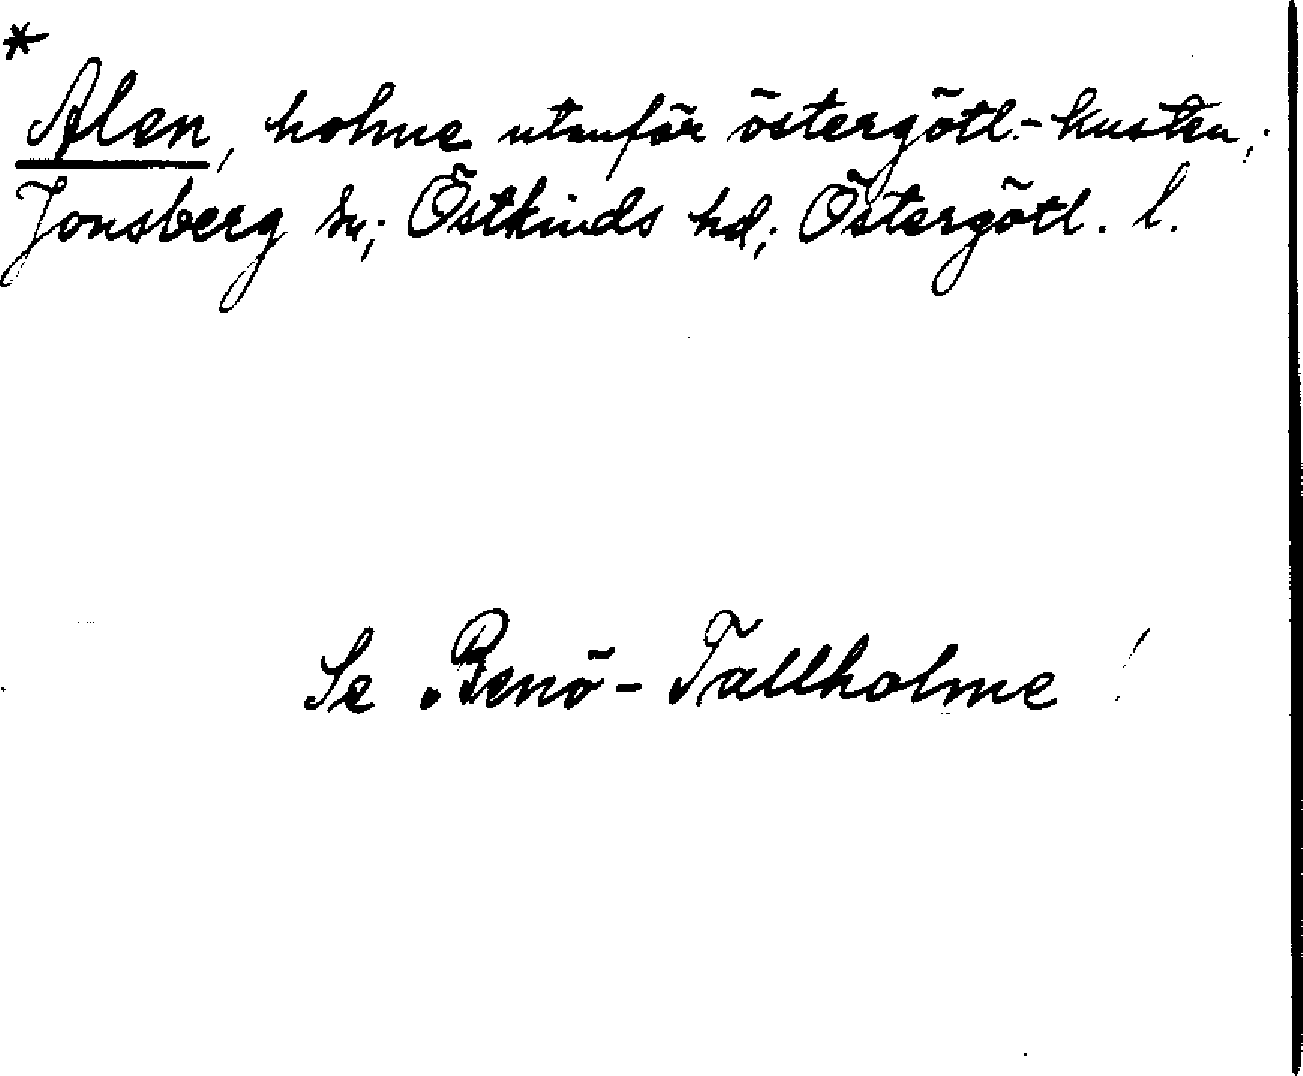 *
Alen, holme utanför östergötl.-kusten;
Jonsberg sn; Östkinds hd; Östergötl. l.
Se Renö-Tallholme!